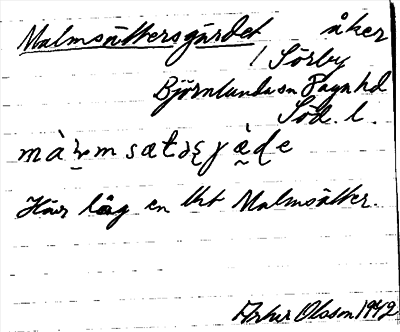 Malmsättersgärdet åker
i Sörby
Björnlunda sn Daga hd
Söd. l.
Här låg en tht Malmsätter.
Artur Olsson 1942